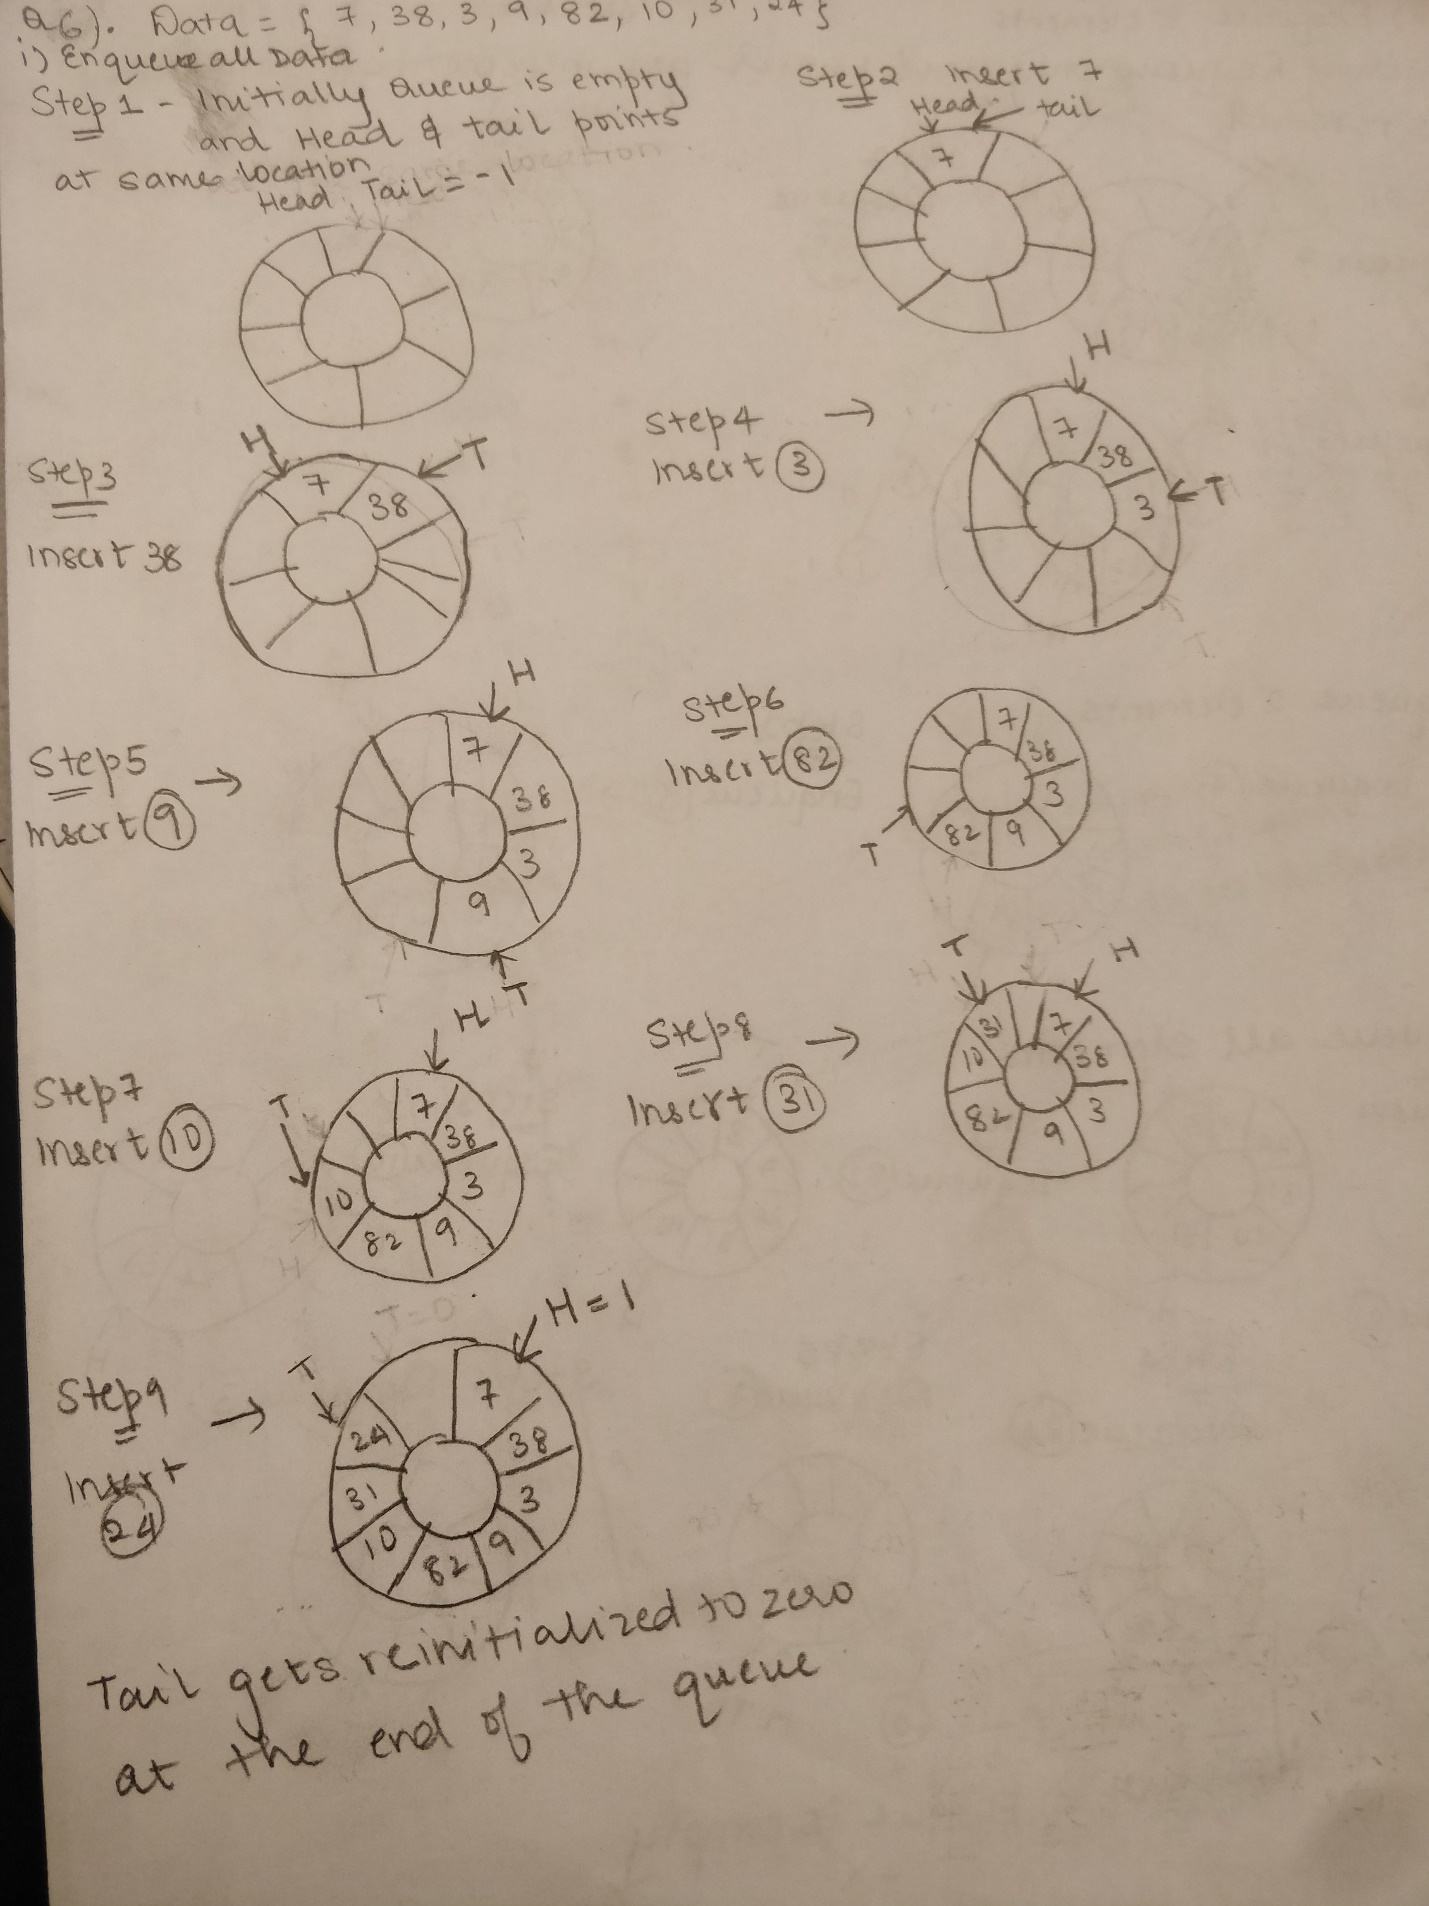 Q6). Data = { 7, 38, 3, 9, 82, 10, 31, 24 }
i) Enqueue all Data
Step 1 - Initially Queue is empty
and Head & tail points
at same location
Head, Tail = -1
Step2 Insert 7
Head tail
7
Step3
Insert 38
H T
7 38
Step4 →
Insert 3
H
7 38 3
T
Step5 →
Insert 9
H
7 38 3 9
T
Step6
Insert 82
7 38 3 9 82
T
Step7
Insert 10
H
T
7 38 3 9 82 10
Step8 →
Insert 31
T H
7 38 3 9 82 10 31
Step9 →
Insert
24
T H = 1
7 38 3 9 82 10 31 24
Tail gets reinitialized to zero
at the end of the queue